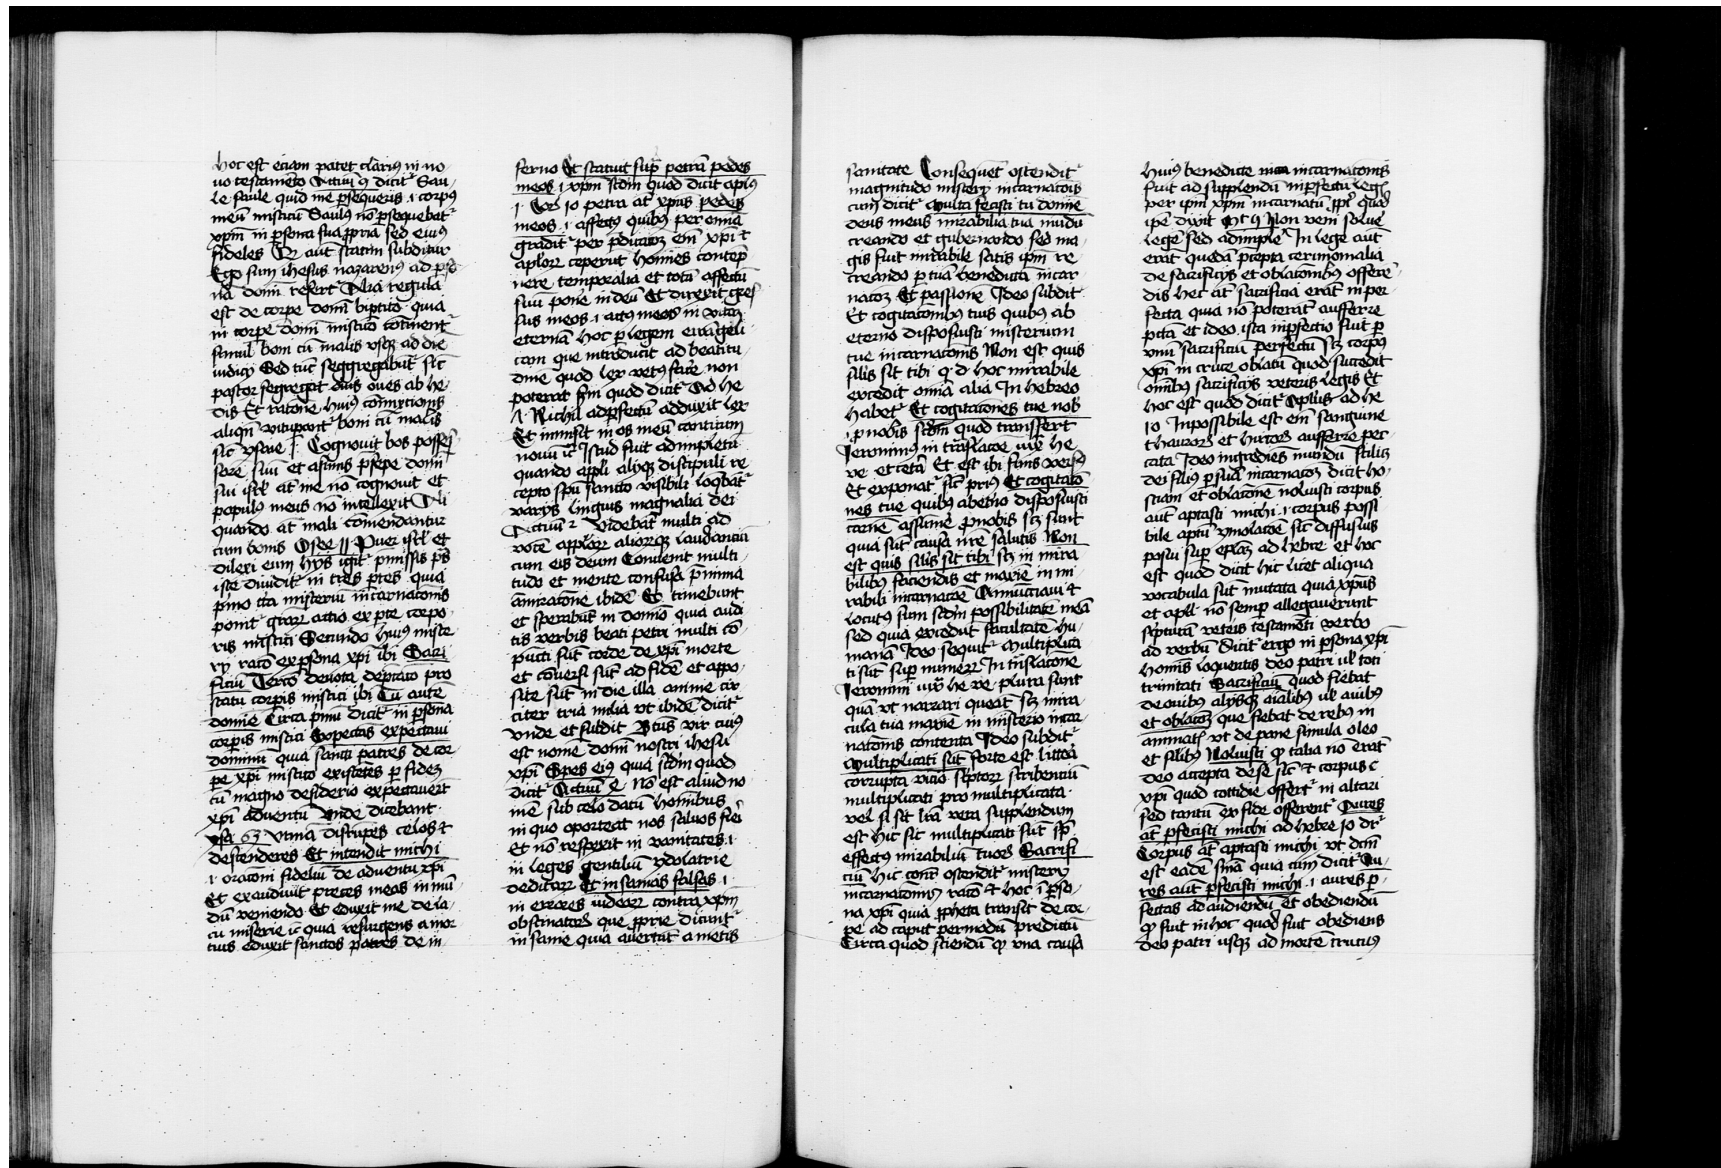 hoc est eciam patet clarius in no-
uo testamēto Actuū 9 dicitr Sau-
le saule quid me ꝑsequeris .i. corpus
meū misticū Saulus nō ꝑsequebatr
xp̄m in ꝑsona sua ꝓpria sed eius
fideles Vn̄ aut̄ statim subditur
Ego sum ihesus nazarenus ad ꝑso
nā domī refert Alia regula
est de corpe domī biptito quia
in corpe domī mistico cōtinentr
simul boni cū malis vsqꝫ ad diē
iudicij Sed tūc seggregabūt sic̄
pastor segregat oues ab he-
dis Et ratōne huius cōmixtionis
aliqn̄ vitupant̄r boni cū malis
sic̄ ysaie i Cognouit bos possess
sorē suū et asinus p̄sepe domī
sui isrl̄ at̄ me nō cognouit et
populus meus nō intellexit Ali
quando at̄ mali cōmendantur
cum bonis Osee 11 Puer isrl̄ et
dilexi eum hijs igit̄ p̄missis p̄s
iste diuiditr in tres ꝑtes quia
pͥmo tāta misteriū incarnatōnis
ponitr grārꝝ actio ex ꝑte corpo-
ris mistici Secundo huius miste
rij ratō ex ꝑsona xp̄i ibi Sacri
ficiū Tercō deuota dep̄catō pro
statu corpis mistici ibi Tu autē
domine Circa pͥmū dicitr in ꝑsona
corpis mistici Expectās expectaui
dominū quia sancti patres de cor
pe xp̄i mistico existētes ꝑ fidez
cū magno desiderio expectauert̄
xp̄i aduentū Vnde dicebant
ysa 63 Vtinā disrūpes celos et
descenderes Et intendit michi
.i. oracōni fideliū de aduentu xp̄i
Et exaudiuit preces meas in mū-
dū veniendo Et eduxit me de la-
cu miserie ic̄ quia resurgens a mor
tuis eduxit sanctos patres de in-
ferno Et statuit sup̄ petrā pedes
meos .i. xp̄m scd̄m quod dicit aplus
i Cor 10 petra at̄ xp̄us pedes
meos .i. affectus quibus per omnia
graditr per p̄dicatōꝫ em̄ xp̄i et
aplorꝝ ceperūt homīes contēp
nere temporalia et totū affectū
suū ponē in deū Et direxit gres
sus meos .i. actus meos in vitaꝫ
eternā hoc ꝑ legem euuāgeli
cam que introducit ad beatitu
dinē quod lex vetus facē non
poterat scd̄m quod dicitr Ad he
7 Nichil ad ꝑfectū adduxit lex
Et inmisit in os meū canticum
nouū ic̄ Istud fuit adimpletū
quando apl̄i alijqꝫ discipuli re
cepto spū sancto visibili loqbātr
varijs linguis magnalia dei
Actuū 2 Videbāt multi ad
vocē applorꝝ aliorūqꝫ laudanciū
cum eis deum Conuenit multi-
tudo et mente confusa p̄ nimia
āmiratōne ibidē Et timebunt
et sperabūt in domīo quia audi
tis verbis beati petri multi cō-
pūcti sūt corde de xp̄i morte
et cōuersi sūt ad fidē et appo-
site sūt in die illa anime cir
citer tria milia vt ibidē dicitr
Vnde et subdit Btus vir cuius
est nomē domī nostri ihesu
xp̄i Spes eius quia scd̄m quod
dicitr Actuū 4 Nō est aliud no
mē sub celo datū hominibus
in quo oporteat nos saluos fieri
Et nō respexit in vanitates .i.
in leges gentiliū ydolatrie
deditarꝝ Et insanias falsas .i.
in errores iudeorꝝ contra xp̄m
obstinatorꝝ que ꝓprie dicuntr
insanie quia auertūt a mentis
sanitate Consequēt̄ ostenditr
magnitudo misterij incarnatōis
cum dicitr Multa fecisti tu domīe
deus meus mirabilia tua mūdū
creando et gubernando sed ma-
gis fuit mirabile satis ip̄m re
creando ꝑ tuā benedictā incar
natōꝫ Et passionē Ideo subditr
Et cogitatōnibus tuis quibus ab
eterno disposuisti misterium
tue incarnatōnis Non est quis
silis sit tibi q d hoc mirabile
excedit omnia alia In hebreo
habetr Et cogitatōnes tue nob̄
.i. ꝓ nobis scd̄m quod transfert
Jeronimus in trāslatōe iuxta he
ve et cetera Et est ibi finis versus
Et exponatr sic̄ prius Et cogitatō-
nes tue quibus ab eterno disposuisti
carnē assumē ꝓ nobis scꝫ sunt
quia sūt causa n̄re salutis Non
est quis silis sit tibi scꝫ in mira
bilibus faciendis et maxie in mi-
rabili incarnatōe Annūciaui et
locutus sum scd̄m possibilitatē meā
sed quia excedūt facultatē hu-
manā Ideo sequitr Multiplica
ti sūt sup̄ numerꝝ In trāslatōne
Jeronimi iux he ve plura sunt
quā vt narrari queāt scꝫ mira
cula tua maxie in misterio incar-
natōnis contenta Ideo subditr
Multiplicati sūt forte est littera
corrupta vicio sc̄ptorꝝ scribenciū
multiplicati pro multiplicata
vel si sit lr̄a vera supplendum
est hic sic multiplicati sūt sc̄ꝫ
effectus mirabiliū tuorꝝ Sacrifi
ciū hic cōnr̄ ostenditr misterij
incarnatōnis ratō et hoc ī ꝑso-
na xp̄i quia ꝓpheta transit de cor-
pe ad caput per modū predictū
Circa quod sciendū ꝙ vna causa
huius benedicte incarnatōnis
fuit ad supplendū inꝑfectū legꝭ
per ip̄m xp̄m incarnatū ꝓpt̄ quod
ip̄e dixit Mt 5 Non veni soluē
legē sed adimplē In lege aūt
erāt quedā p̄cepta cerimonialia
de sacrificijs et oblatōnibus offerē-
dis hec at̄ sacrificia erāt inper-
fecta quia nō poterāt aufferre
pctā et ideo ista inꝑfectio fuit ꝑ
vnū sacrificiū perfectū scꝫ corpus
xp̄i in cruce oblatū quod succedit
omibus sacrificijs veteris legis Et
hoc est quod dicitr Apl̄us ad he
10 Inpossibile est em̄ sanguine
thaurorꝝ et hircorꝝ aufferre pec
cata Ideo ingrediēs mundū scilicꝫ
dei filius ꝑ suā incarnatōꝫ dicit ho-
stiam et oblatōne noluisti corpus
aūt aptasti michi .i. corpus possi
bile aptū ymolatōe sic̄ diffusius
posui sup̄ eplaꝫ ad hebre et hoc
est quod dicit hic licet aliqua
vocabula sūt mutata quia xp̄us
et apl̄i nō semp̄ allegauerunt
sc̄pturā veteris testamēti verbo
ad verbū Dicitr ergo in ꝑsona xp̄i
homīs loquentis deo patri ul̄ toti
trinitati Sacrificiū quod fiebat
de ouibus alijsqꝫ aīalibus ul̄ auibus
et oblatōꝫ que fiebat de rebus in
animatꝭ vt de pane simula oleo
et silibus Noluisti ꝙ talia nō erāt
deo accepta de se sic̄ et corpus
xp̄i quod cottidie offertr in altari
sed tantū ex fide offerentꝭ Aures
at̄ ꝑfecisti michi ad hebre 10 dr̄
Corpus at̄ aptasti michi vt dcm̄
est eadē sn̄ia quia cum dicitr Au-
res aut ꝑfecisti michi .i. aures ꝑ-
fectas ad audiendū et obediendū
ꝙ fuit in hoc quod fuit obediens
deo patri usqꝫ ad mortē crucis